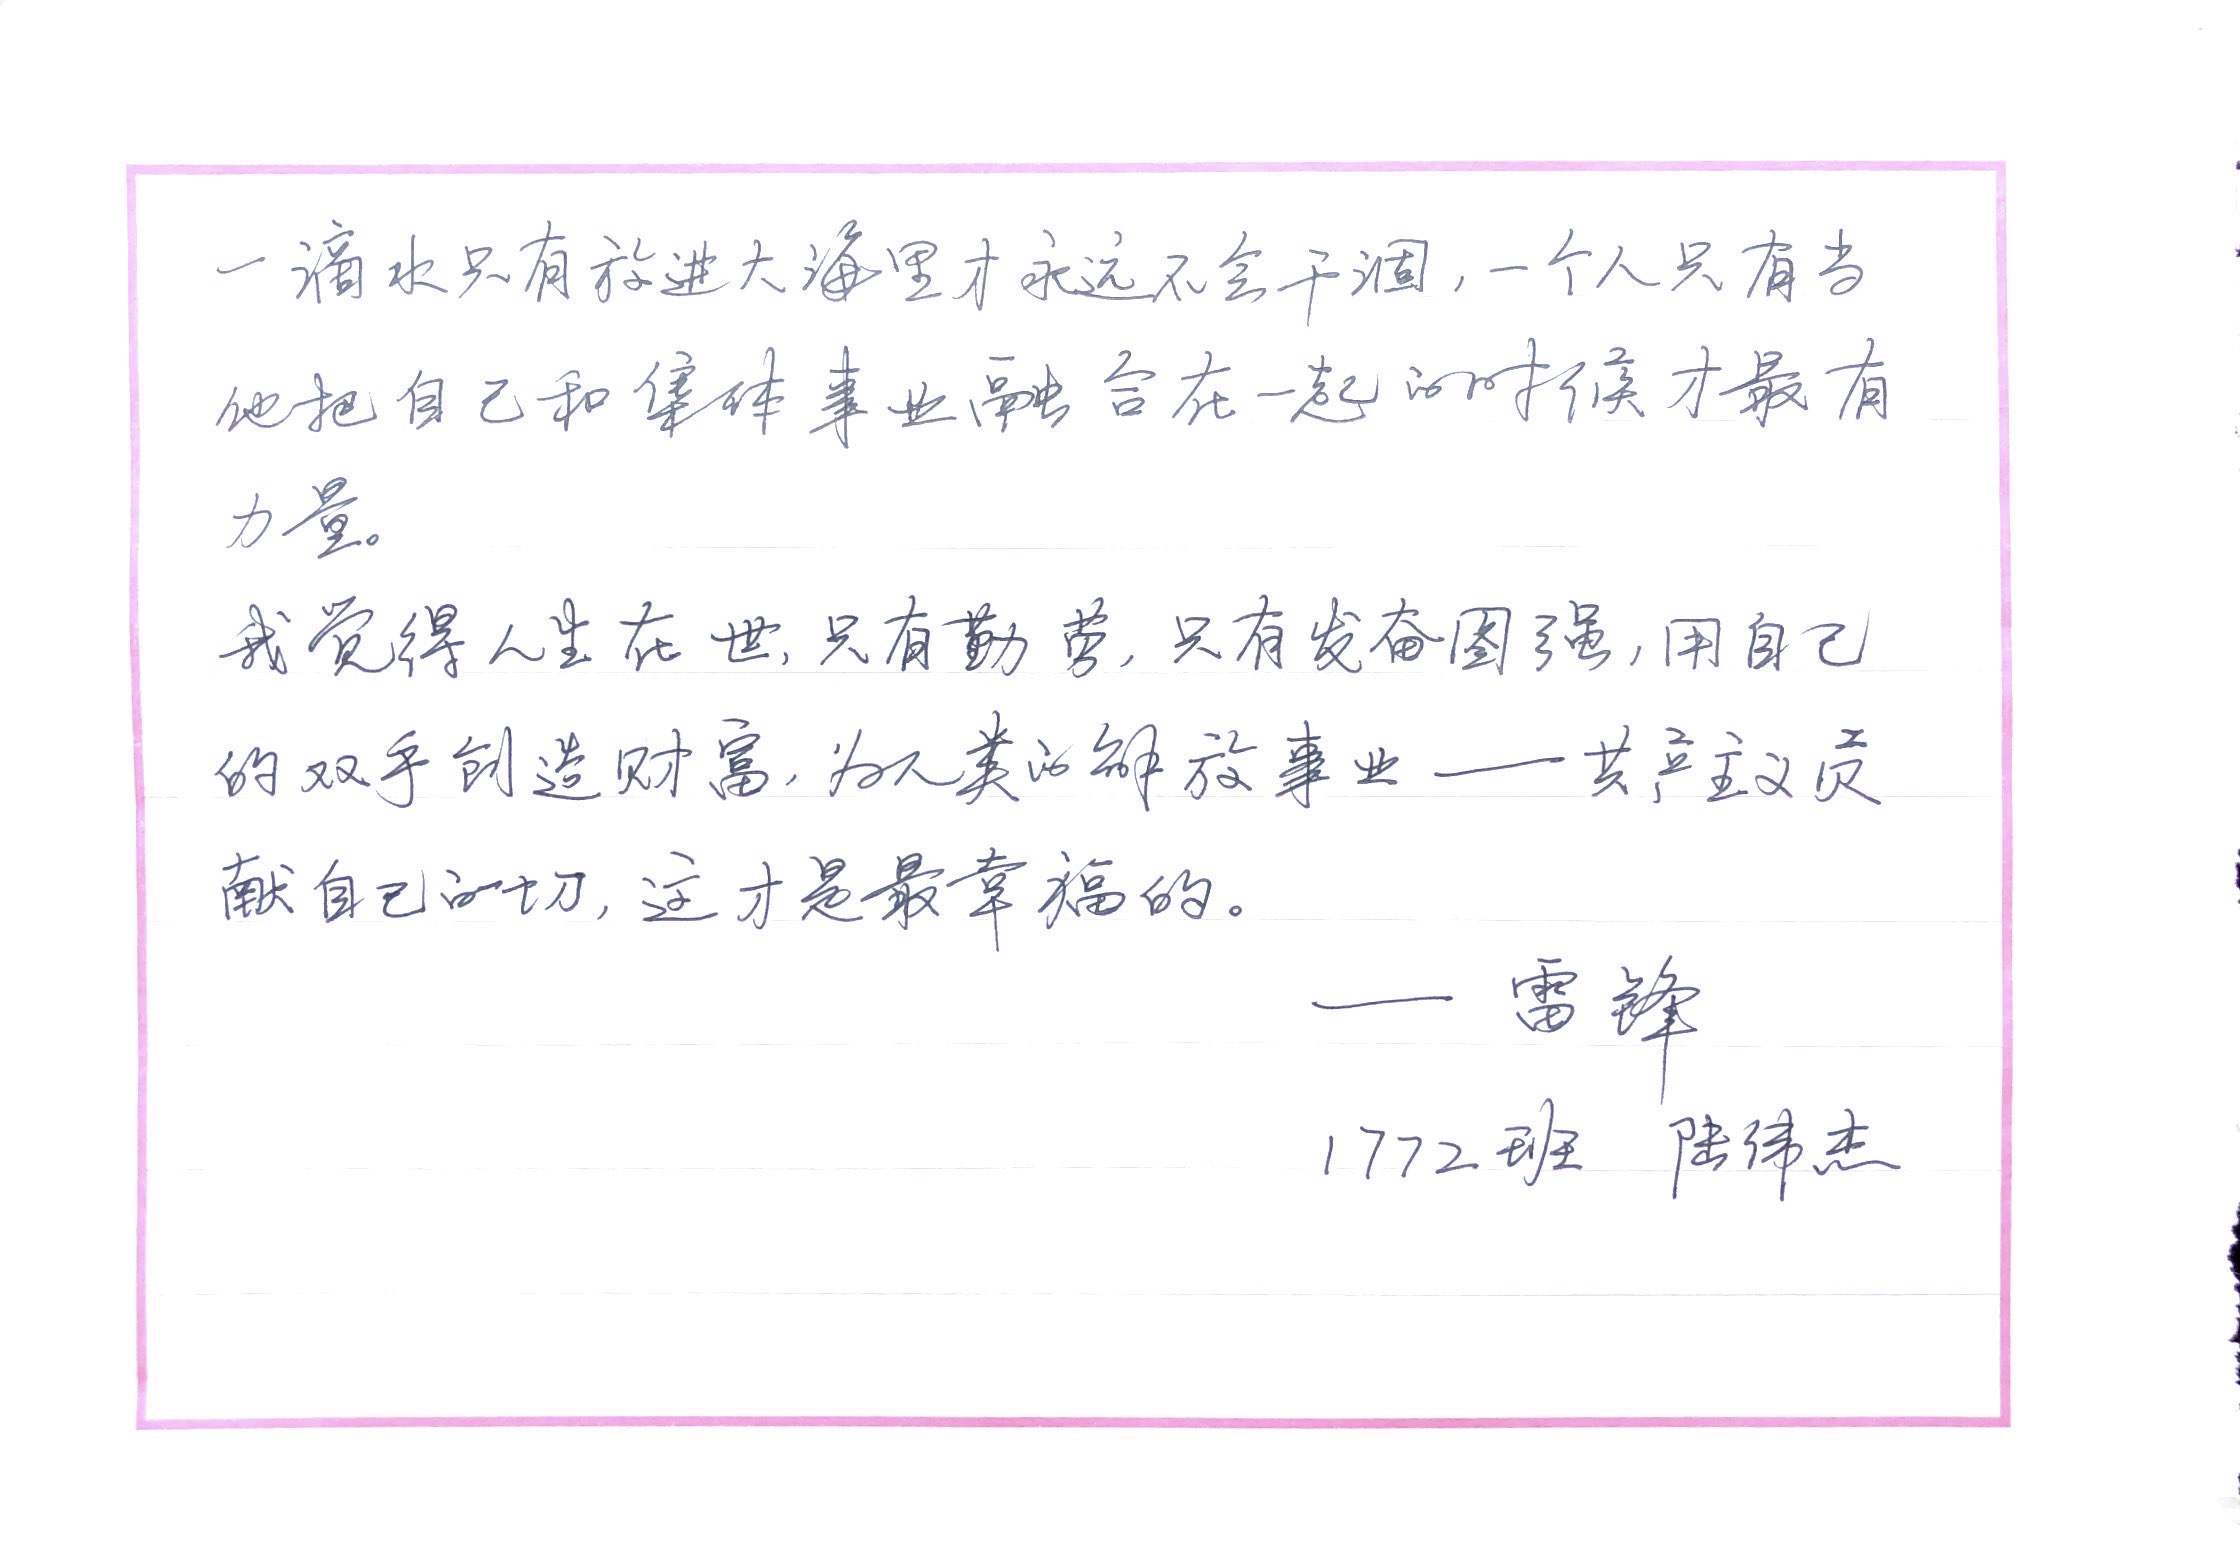 一滴水只有放进大海里才永远不会干涸，一个人只有当
他把自己和集体事业融合在一起的时候才最有
力量。
我觉得人生在世，只有勤劳，只有发奋图强，用自己
的双手创造财富，为人类的解放事业——共产主义贡
献自己的一切，这才是最幸福的。
——雷锋
1772班 陆伟杰